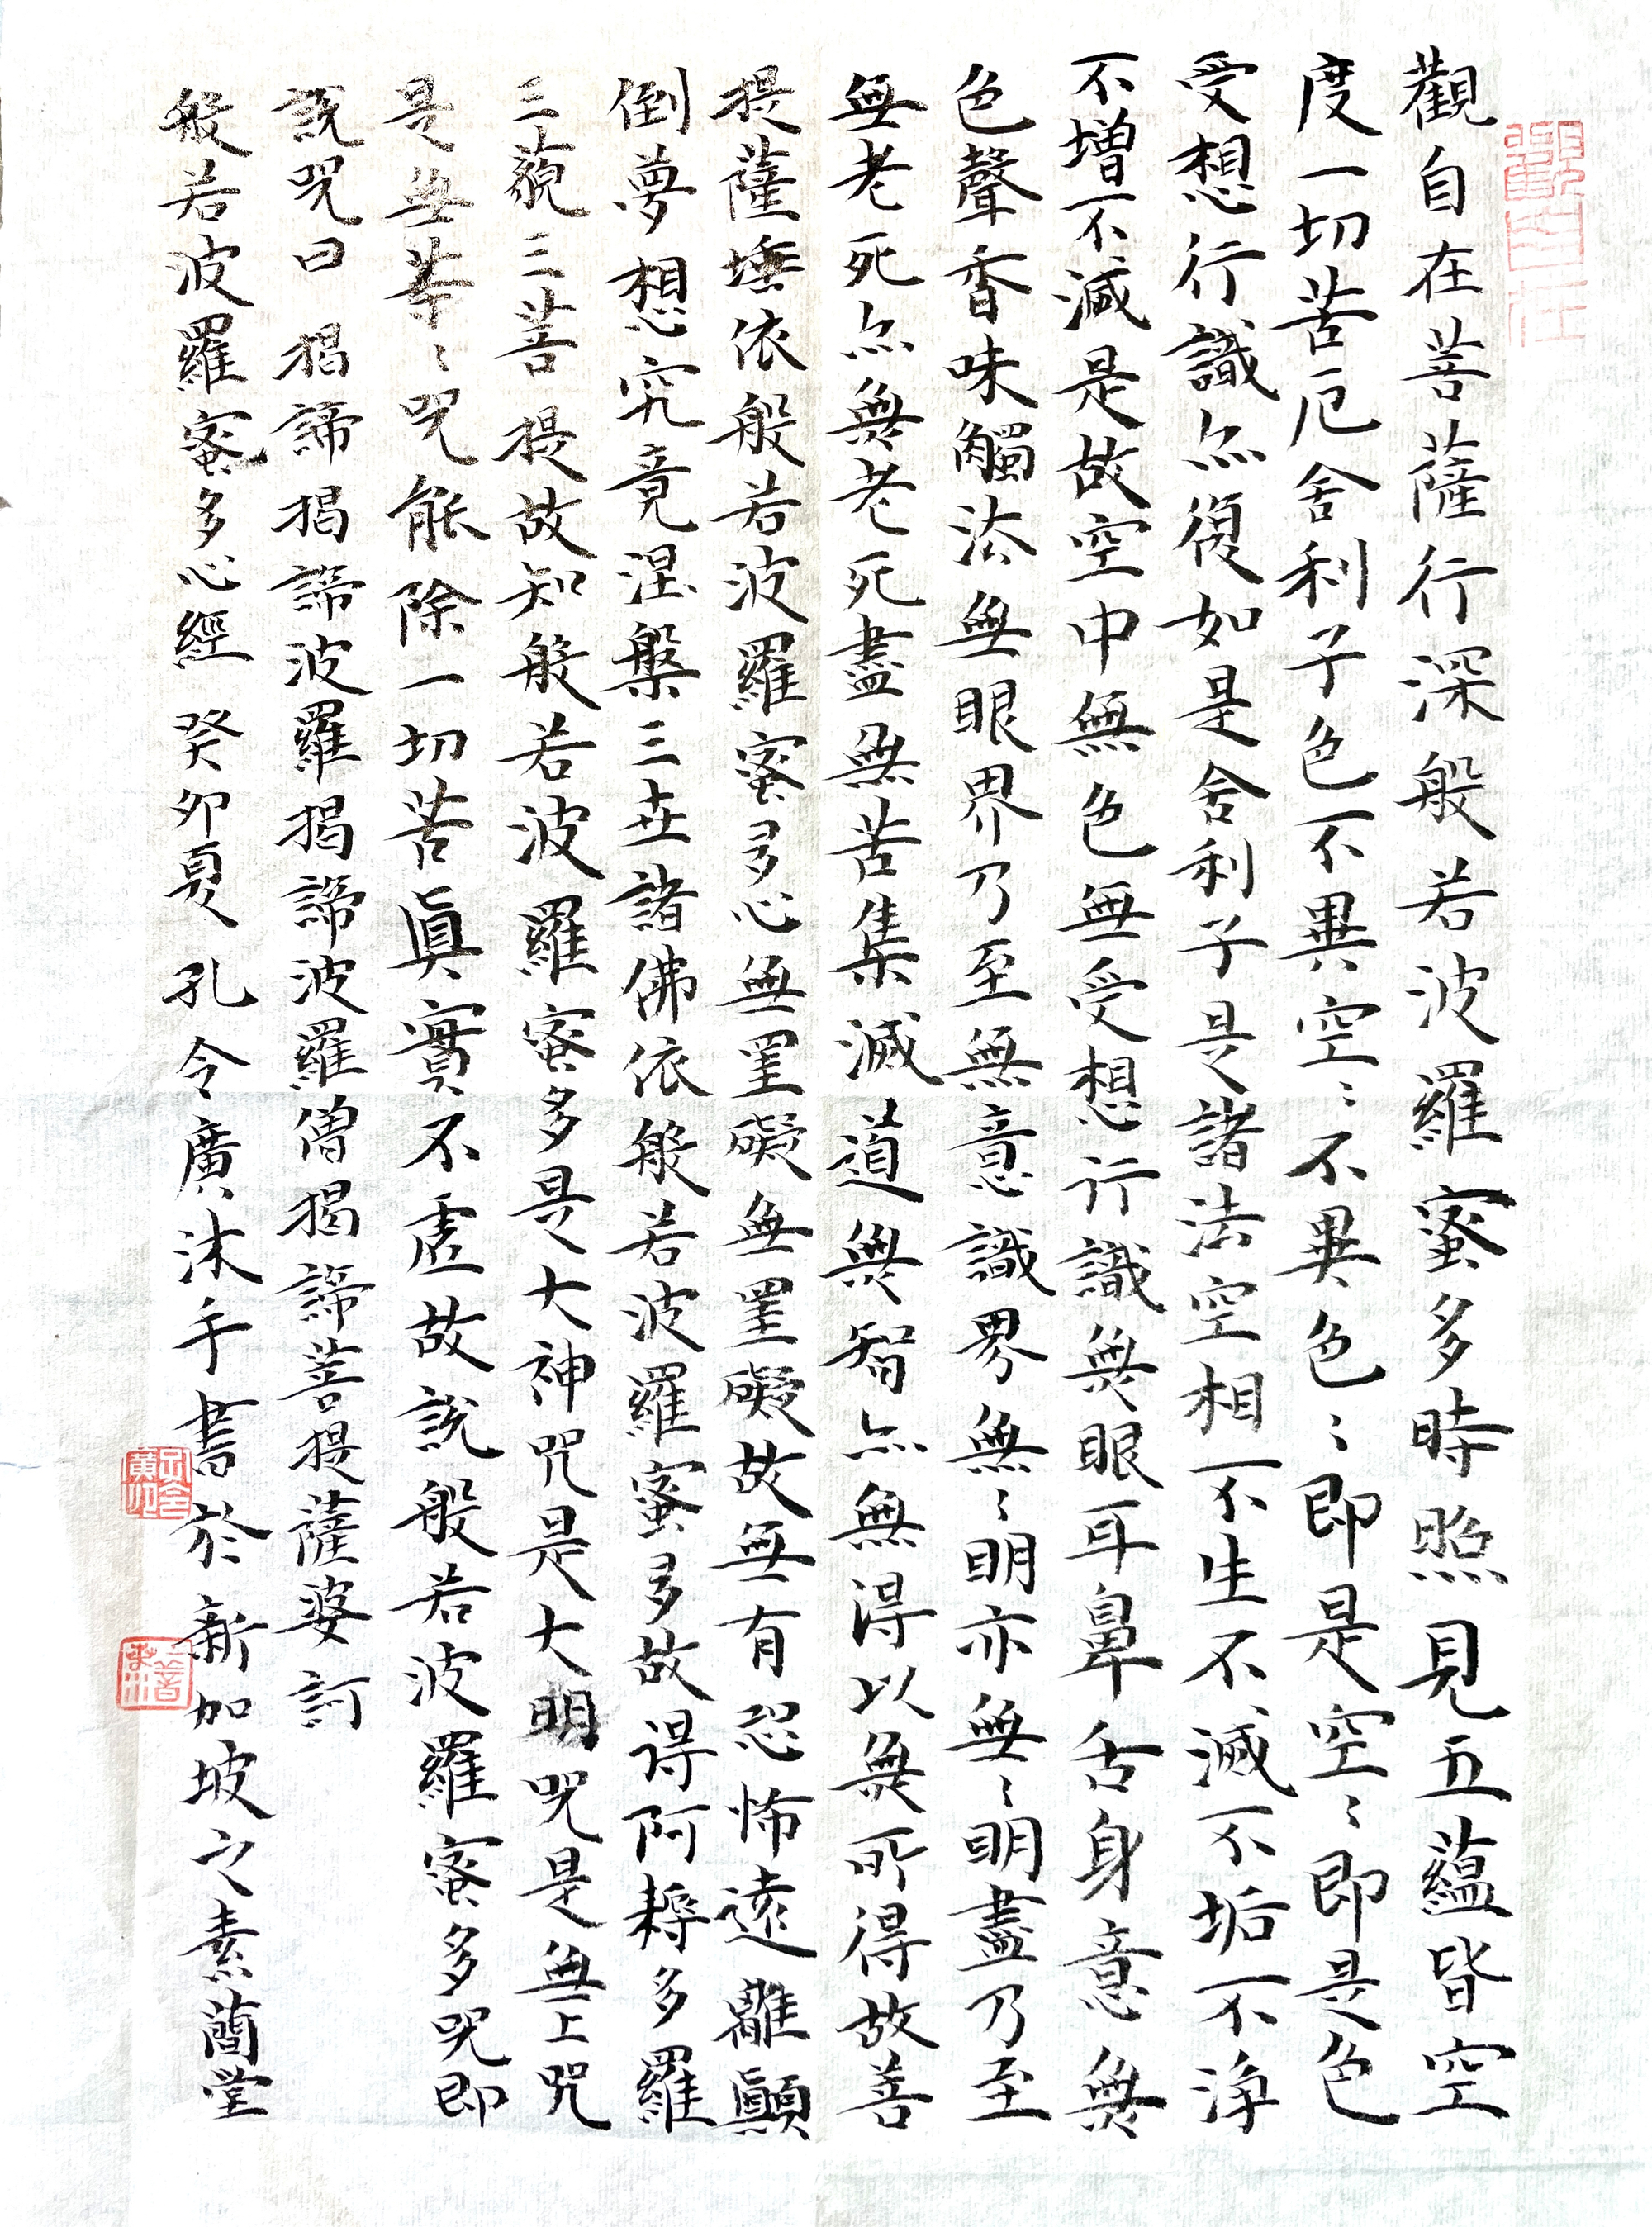 觀自在
觀自在菩薩行深般若波羅蜜多時照見五蘊皆空
度一切苦厄舍利子色不異空〻不異色〻即是空〻即是色
受想行識亦復如是舍利子是諸法空相不生不滅不垢不淨
不增不減是故空中無色無受想行識無眼耳鼻舌身意無
色聲香味觸法無眼界乃至無意識界〻無〻明亦無〻明盡乃至
無老死亦無老死盡無苦集滅道無智亦無得以無所得故菩
提薩埵依般若波羅蜜多心無罣礙無罣礙故無有恐怖遠離顛
倒夢想究竟涅槃三世諸佛依般若波羅蜜多故得阿耨多羅
三藐三菩提故知般若波羅蜜多是大神咒是大明咒是無上咒
是無等〻咒能除一切苦真實不虛故說般若波羅蜜多咒即
說咒曰 揭諦揭諦波羅揭諦波羅僧揭諦菩提薩婆訶
般若波羅蜜多心經 癸卯夏孔令廣沐手書於新加坡之素蘭堂
孔令廣印